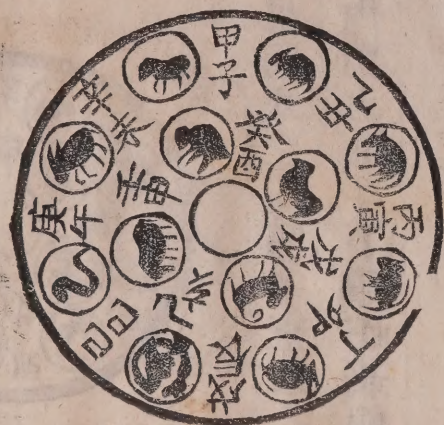 甲子
乙丑
丙寅
丁卯
戊辰
己巳
庚午
辛未
壬申
癸酉
戊戌
己亥